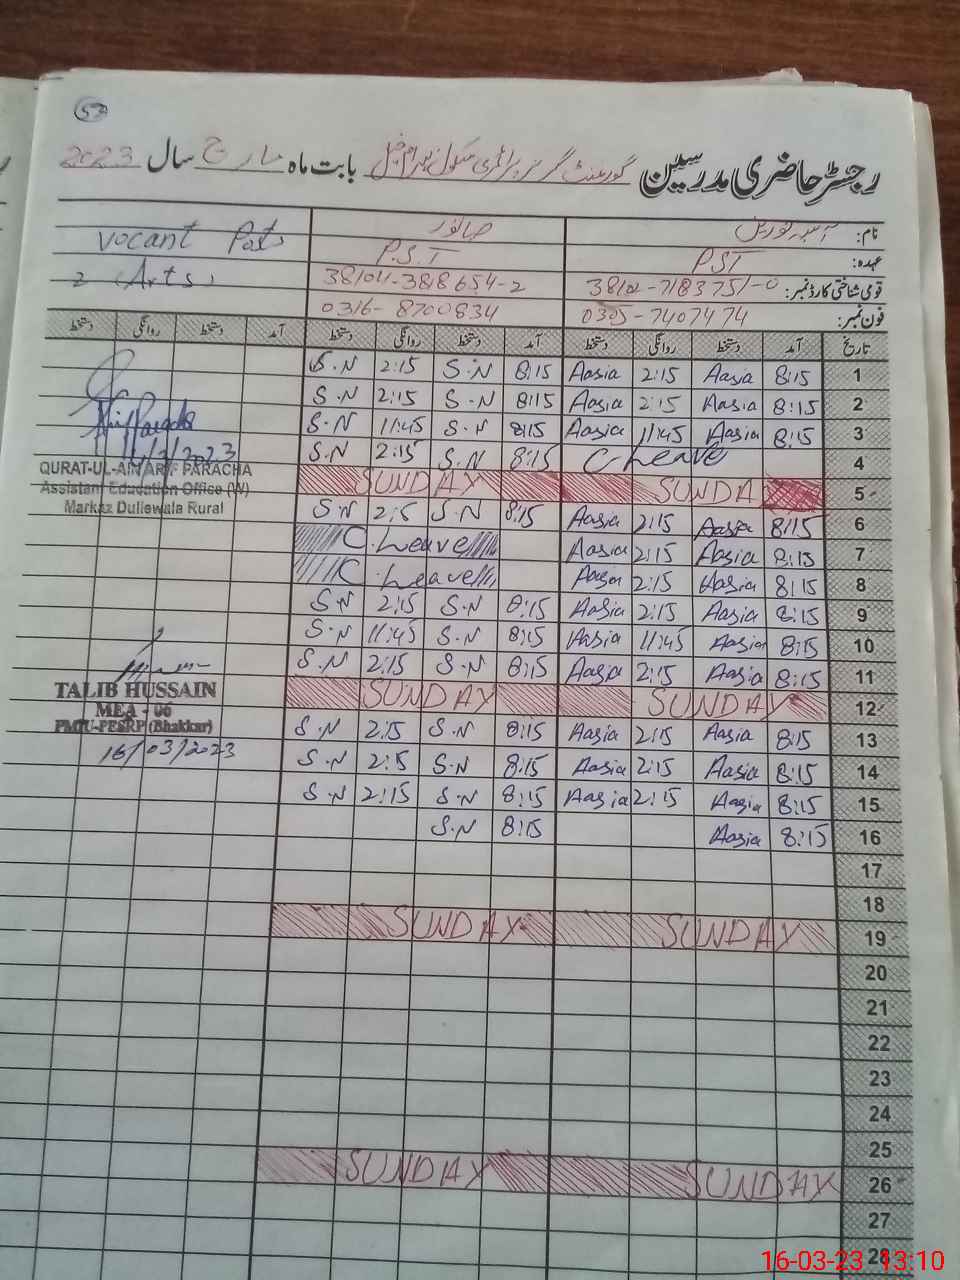 53
رجسٹر حاضری مدرسین گورنمنٹ گرلز پرائمری سکول بہرام خیل بابت ماہ مارچ سال 2023
نام: آسیہ نورین صبا نور Vocant Posts
عہدہ: PST P.S.T 2 (Arts)
قومی شناختی کارڈ نمبر: 38102-7183751-0 38104-3818654-2
فون نمبر: 0305-7407474 0316-8700834
تاریخ آمد دستخط روانگی دستخط آمد دستخط روانگی دستخط آمد دستخط روانگی دستخط
1 8:15 Aasia 2:15 Aasia 8:15 S.N 2:15 S.N
2 8:15 Aasia 2:15 Aasia 8:15 S.N 2:15 S.N
3 8:15 Aasia 11:45 Aasia 8:15 S.N 11:45 S.N
4 C-Leave 8:15 S.N 2:15 S.N
5 SUNDAY SUNDAY
6 8:15 Aasia 2:15 Aasia 8:15 S.N 2:15 S.N
7 8:15 Aasia 2:15 Aasia C.Leave
8 8:15 Aasia 2:15 Aasia C.Leave
9 8:15 Aasia 2:15 Aasia 8:15 S.N 2:15 S.N
10 8:15 Aasia 11:45 Aasia 8:15 S.N 11:45 S.N
11 8:15 Aasia 2:15 Aasia 8:15 S.N 2:15 S.N
12 SUNDAY SUNDAY
13 8:15 Aasia 2:15 Aasia 8:15 S.N 2:15 S.N
14 8:15 Aasia 2:15 Aasia 8:15 S.N 2:15 S.N
15 8:15 Aasia 2:15 Aasia 8:15 S.N 2:15 S.N
16 8:15 Aasia 8:15 S.N
17
18
19 SUNDAY SUNDAY
20
21
22
23
24
25
26 SUNDAY SUNDAY
27
28
/3/2023
QURAT-UL-AIN ARIF PARACHA
Assistant Education Office (W)
Markaz Dullewala Rural
TALIB HUSSAIN
MEA - 06
PMIU-PESRP (Bhakkar)
16/03/2023
16-03-23 13:10